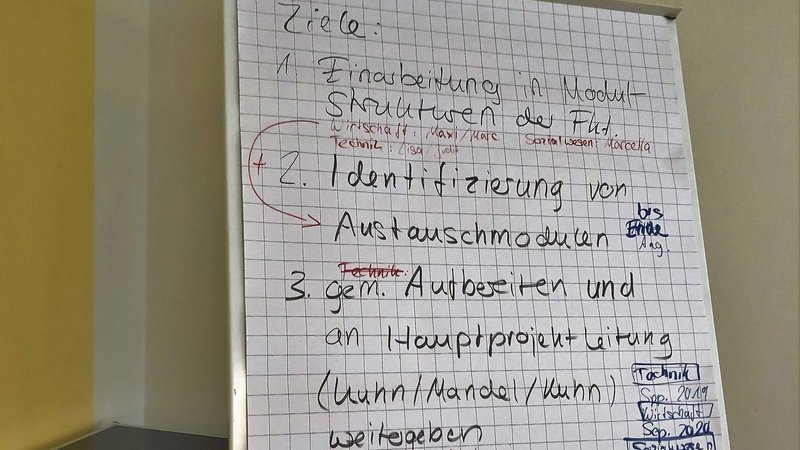 Ziele:
1. Einarbeitung in Modul-
Strukturen der Fkt.
Wirtschaft: Maxi/Marc Sozialwesen: Marcella
Technik: Lisa/Judit
+
2. Identifizierung von
Austauschmodulen
bis
Ende
Aug.
Technik:
3. gem. Aufbereiten und
an Hauptprojektleitung
(Kuhn/Mandel/Kuhn)
weitergeben
Technik
Sep. 2019
Wirtschaft
Sep. 2020
Sozialwesen